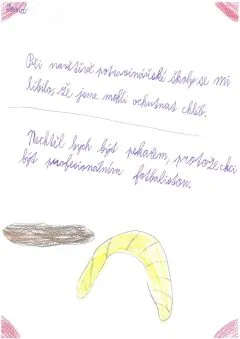 Při navštívě potravinářské školy se mi
líbilo, že jsme mohli ochutnat chléb.
Nechtěl bych být pekařem, protože chci
být profesionálním fotbalistou.